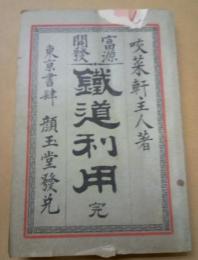 咬菜軒主人著
富源
開發
鐵道利用 完
東京書肆 顏玉堂發兌